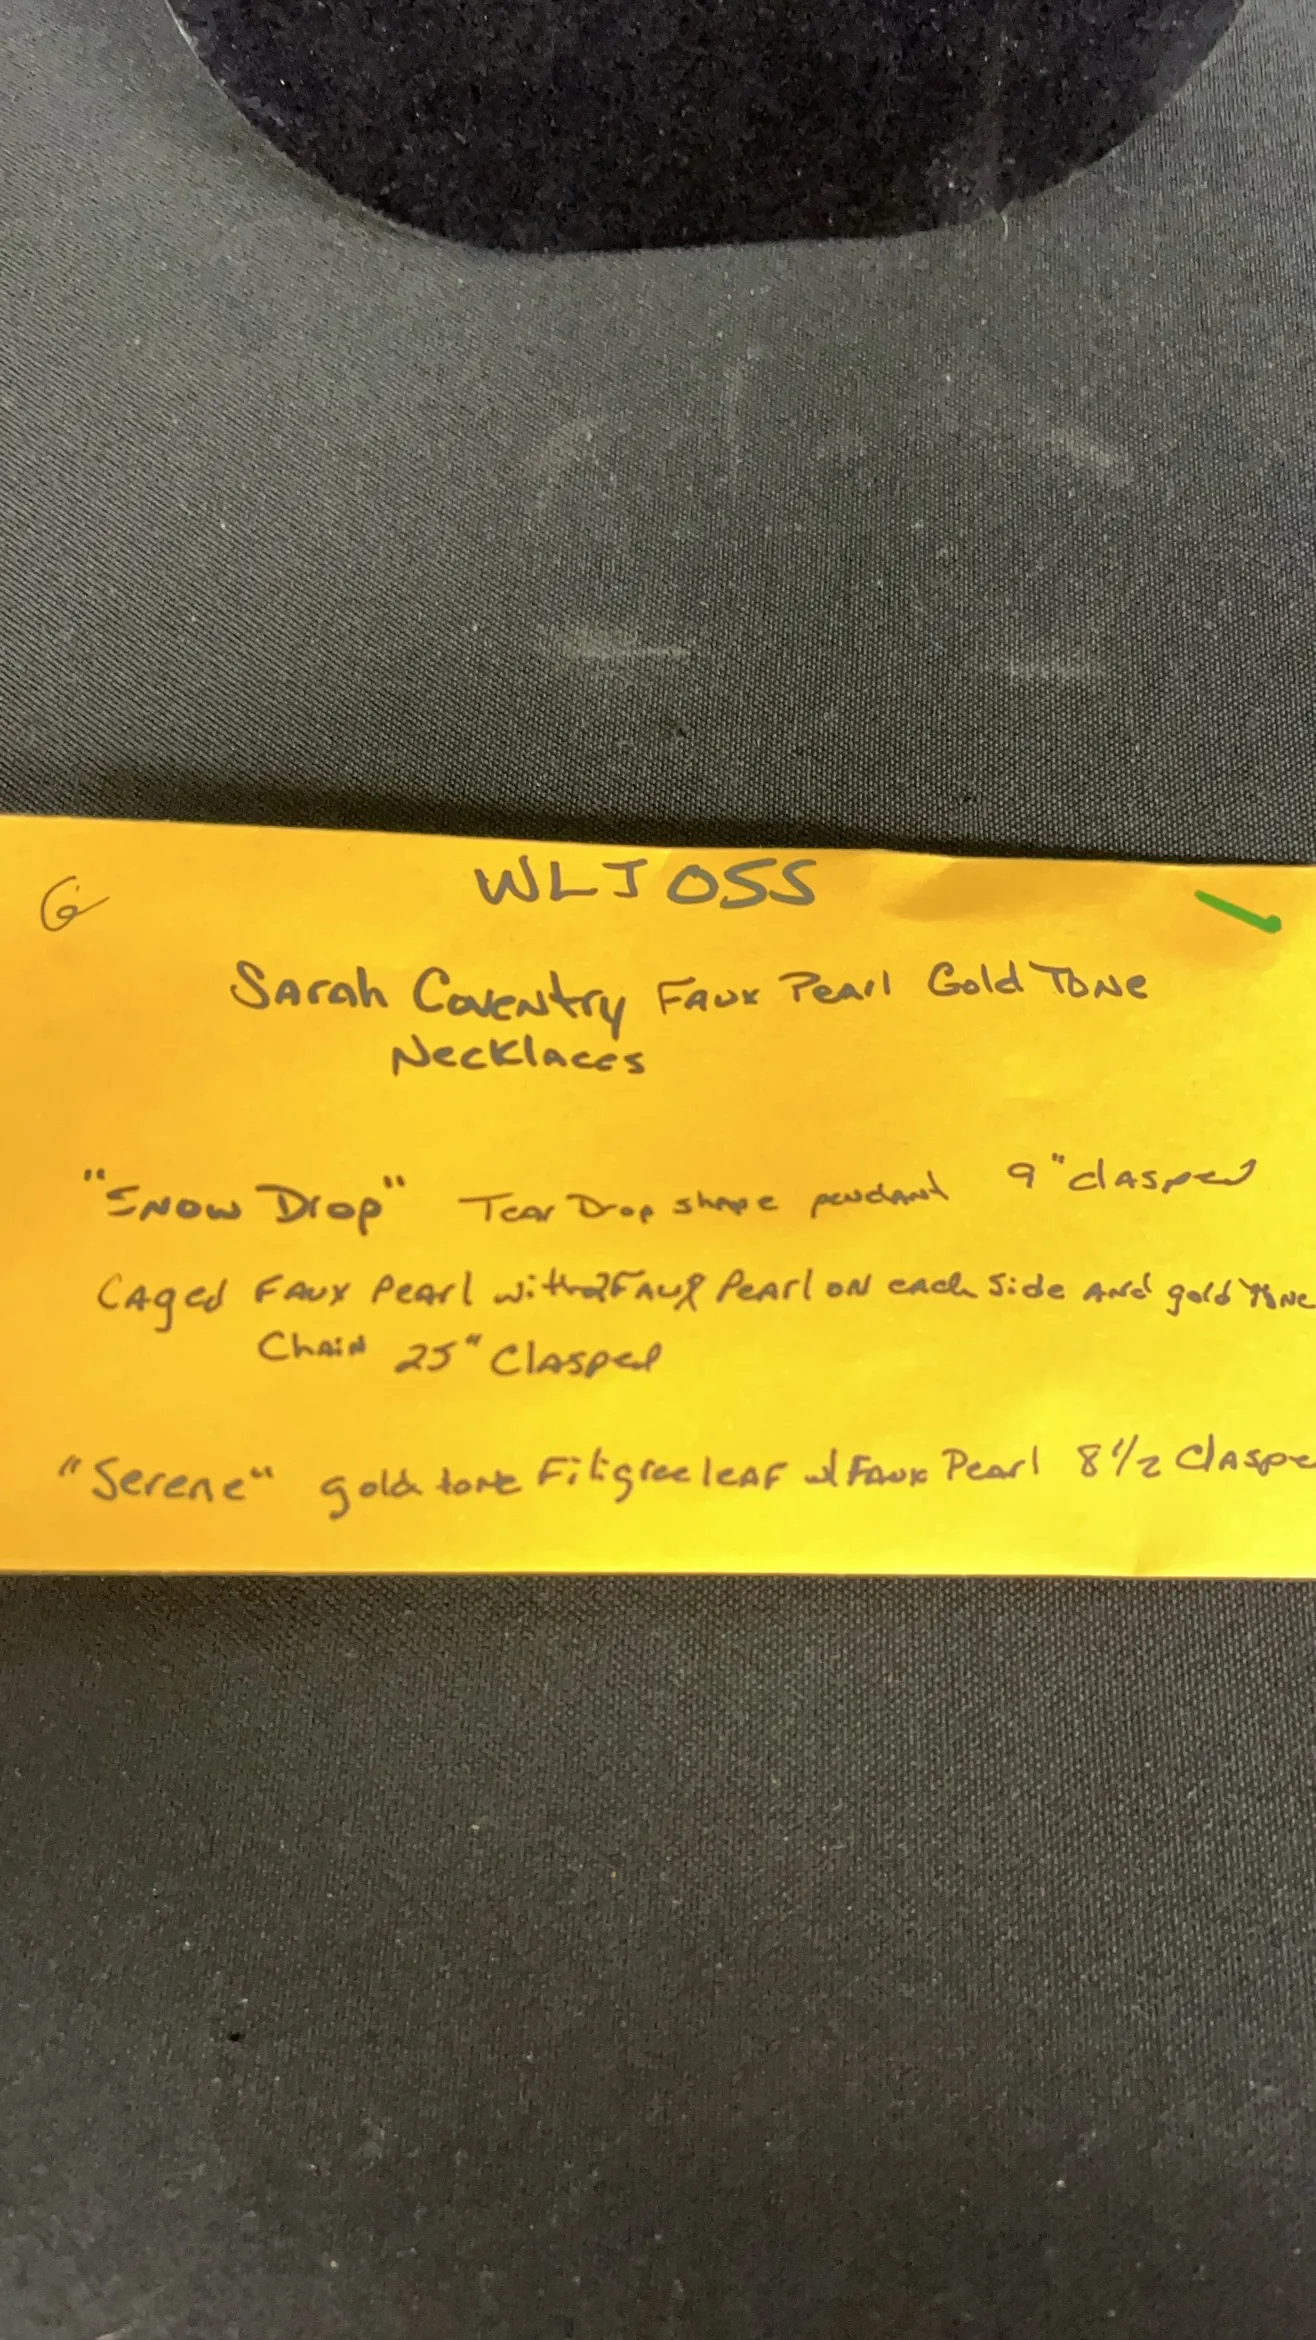 G
WLJ055
Sarah Coventry Faux Pearl Gold Tone
Necklaces
"Snow Drop" Tear Drop shape pendant 9" clasped
Caged Faux Pearl with 2 Faux Pearl on each side and gold Tone
Chain 25" Clasped
"Serene" gold tone Filigree leaf w/ Faux Pearl 8 1/2 Claspe